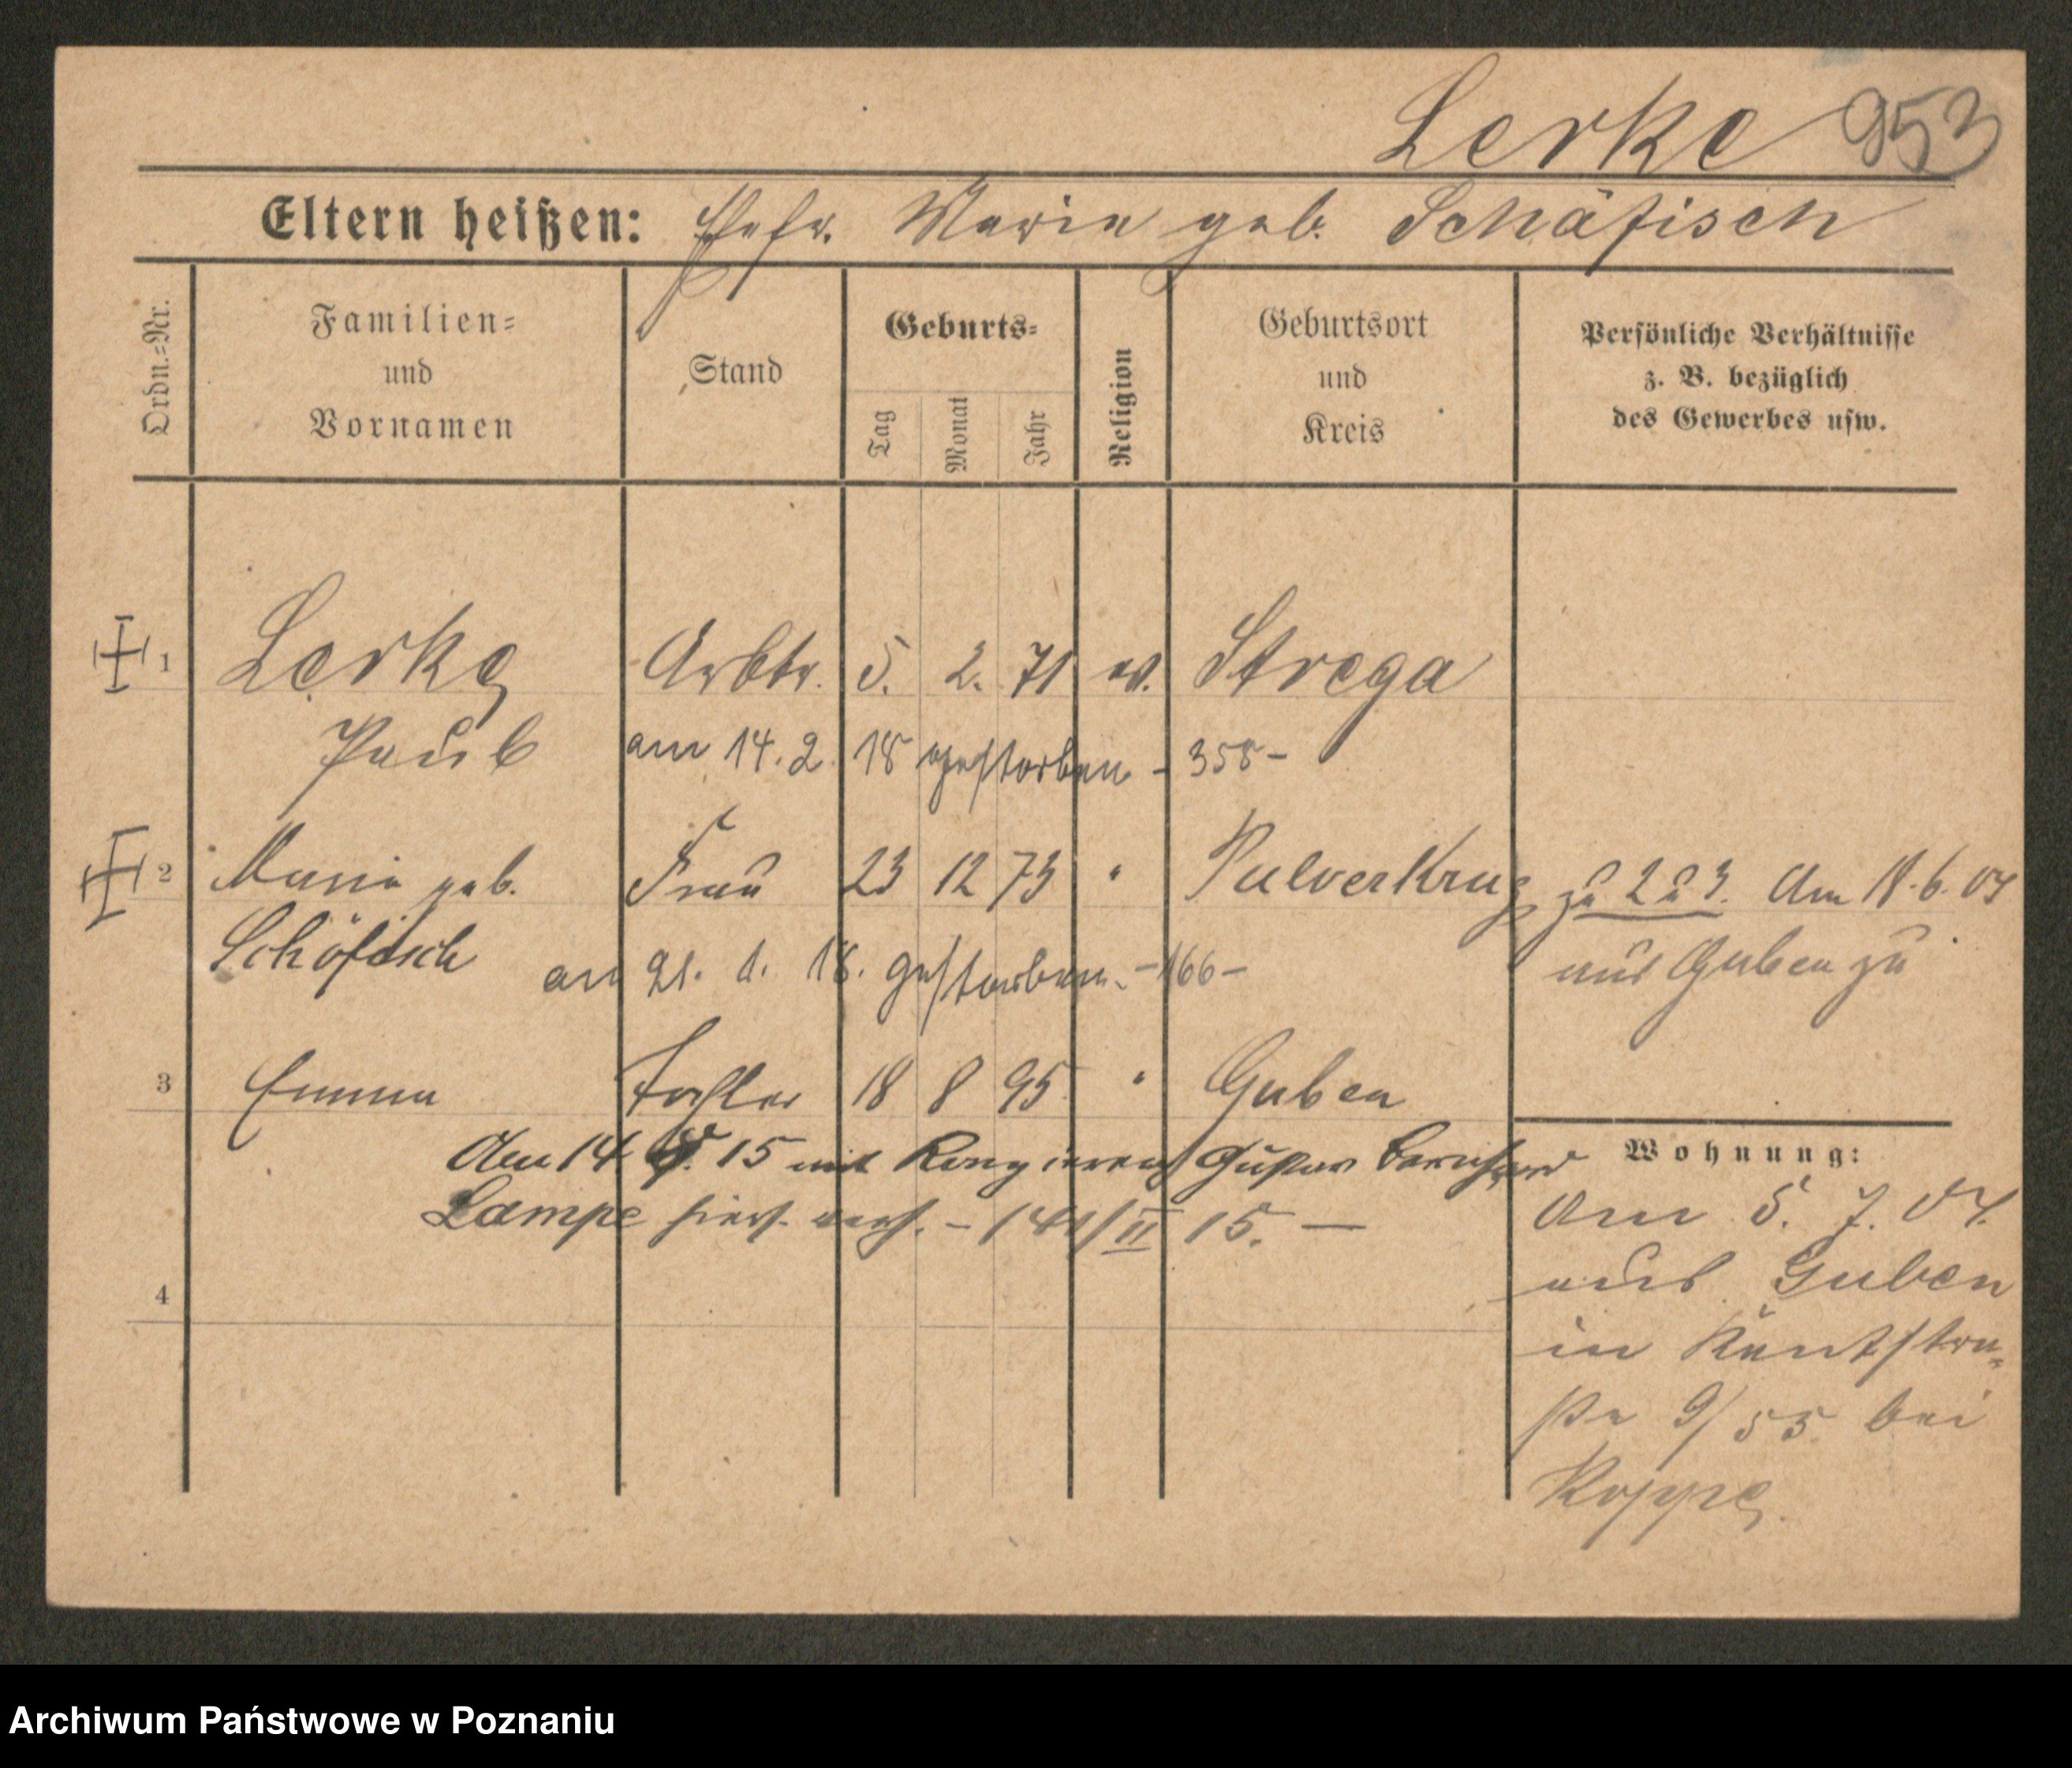 Lerke 953
Eltern heißen: Ehefr. Marie geb. Schäfisch
Ordn.=Nr.
Familien=
und
Vornamen
Stand
Geburts=
Tag
Monat
Jahr
Religion
Geburtsort
und
Kreis
Persönliche Verhältnisse
z. B. bezüglich
des Gewerbes usw.
1 Lerke Arbtr. 5. 2. 71 ev. Strega
Paul am 14. 2. 18 gestorben - 358 -
2 Marie geb. Frau 23 12 73 " Pulverkrug
Schöfisch am 21. 1. 18. gestorben. - 166 -
zu 2 u 3. Am 18. 6. 07
aus Guben zu
3 Emma Tochter 18 8 95 " Guben
Am 14. 15 mit Gustav Bernhard
Lampe hier verh. - 141/II 15. -
4
Wohnung:
Am 5. 7. 07.
aus Guben
in Kantstra-
ße 9/55 bei
Koppe.
Archiwum Państwowe w Poznaniu